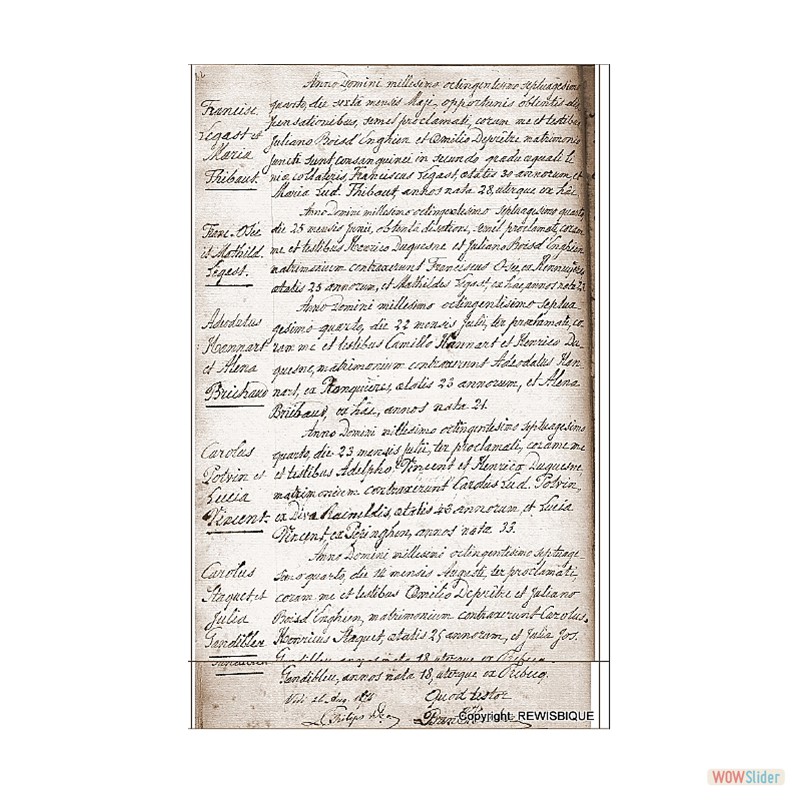 Francisc.
Legast et
Maria
Thibaut.
Anno Domini millesimo octingentesimo septuagesimo
quarto, die sexta mensis Maji, opportunis obtentis dis
pensationibus, semel proclamati, coram me et testibus
Juliano Boisd'Enghien et Emilio Deprêtre matrimonio
juncti sunt consanguinei in secundo gradu aequali li
niae collateris, Franciscus Legast, aetatis 30 annorum, et
Maria Lud. Thibaut, annos nata 28, uterque ex hâc
Franc. Osée
et Mathild.
Legast.
Anno Domini millesimo octingentesimo septuagesimo quarto
die 25 mensis Junii, obtentâ semel proclamati, coram
me et testibus Henrico Duquesne et Juliano Boisd'Enghien
matrimonium contraxerunt Franciscus Osée, ex
aetatis 25 annorum, et Mathildes Legast, ex hâc, annos nata 23
Adeodatus
Hannart
et Alena
Brichaud
Anno Domini millesimo octingentesimo septua
gesimo quarto, die 22 mensis Julii, ter proclamati, co
ram me et testibus Camillo Hannart et Henrico Du
quesne, matrimonium contraxerunt Adeodatus Han
nart, ex aetatis 23 annorum, et Alena
Brichaud, ex hâc, annos nata 21.
Carolus
Potvin et
Lucia
Vincent.
Anno Domini millesimo octingentesimo septuagesimo
quarto, die 23 mensis Julii, ter proclamati, coram me
et testibus Adelpho Vincent et Henrico Duquesne
matrimonium contraxerunt Carolus Lud. Potvin,
ex Diva Raineldis, aetatis 43 annorum, et Lucia
Vincent, ex Peringhen, annos nata 33.
Carolus
Staquet et
Julia
Gandibleu
Anno Domini millesimo octingentesimo septuage
simo quarto, die 14 mensis Augusti, ter proclamati,
coram me et testibus Emilio Deprêtre et Juliano
Boisd'Enghien, matrimonium contraxerunt Carolus
Henricus Staquet, aetatis 25 annorum, et Julia Jos.
Gandibleu, annos nata 18, uterque ex Orbecq.
Gandibleu, annos nata 18, uterque ex Orbecq.
Quod testor
Copyright: REWISBIQUE
WOWSlider